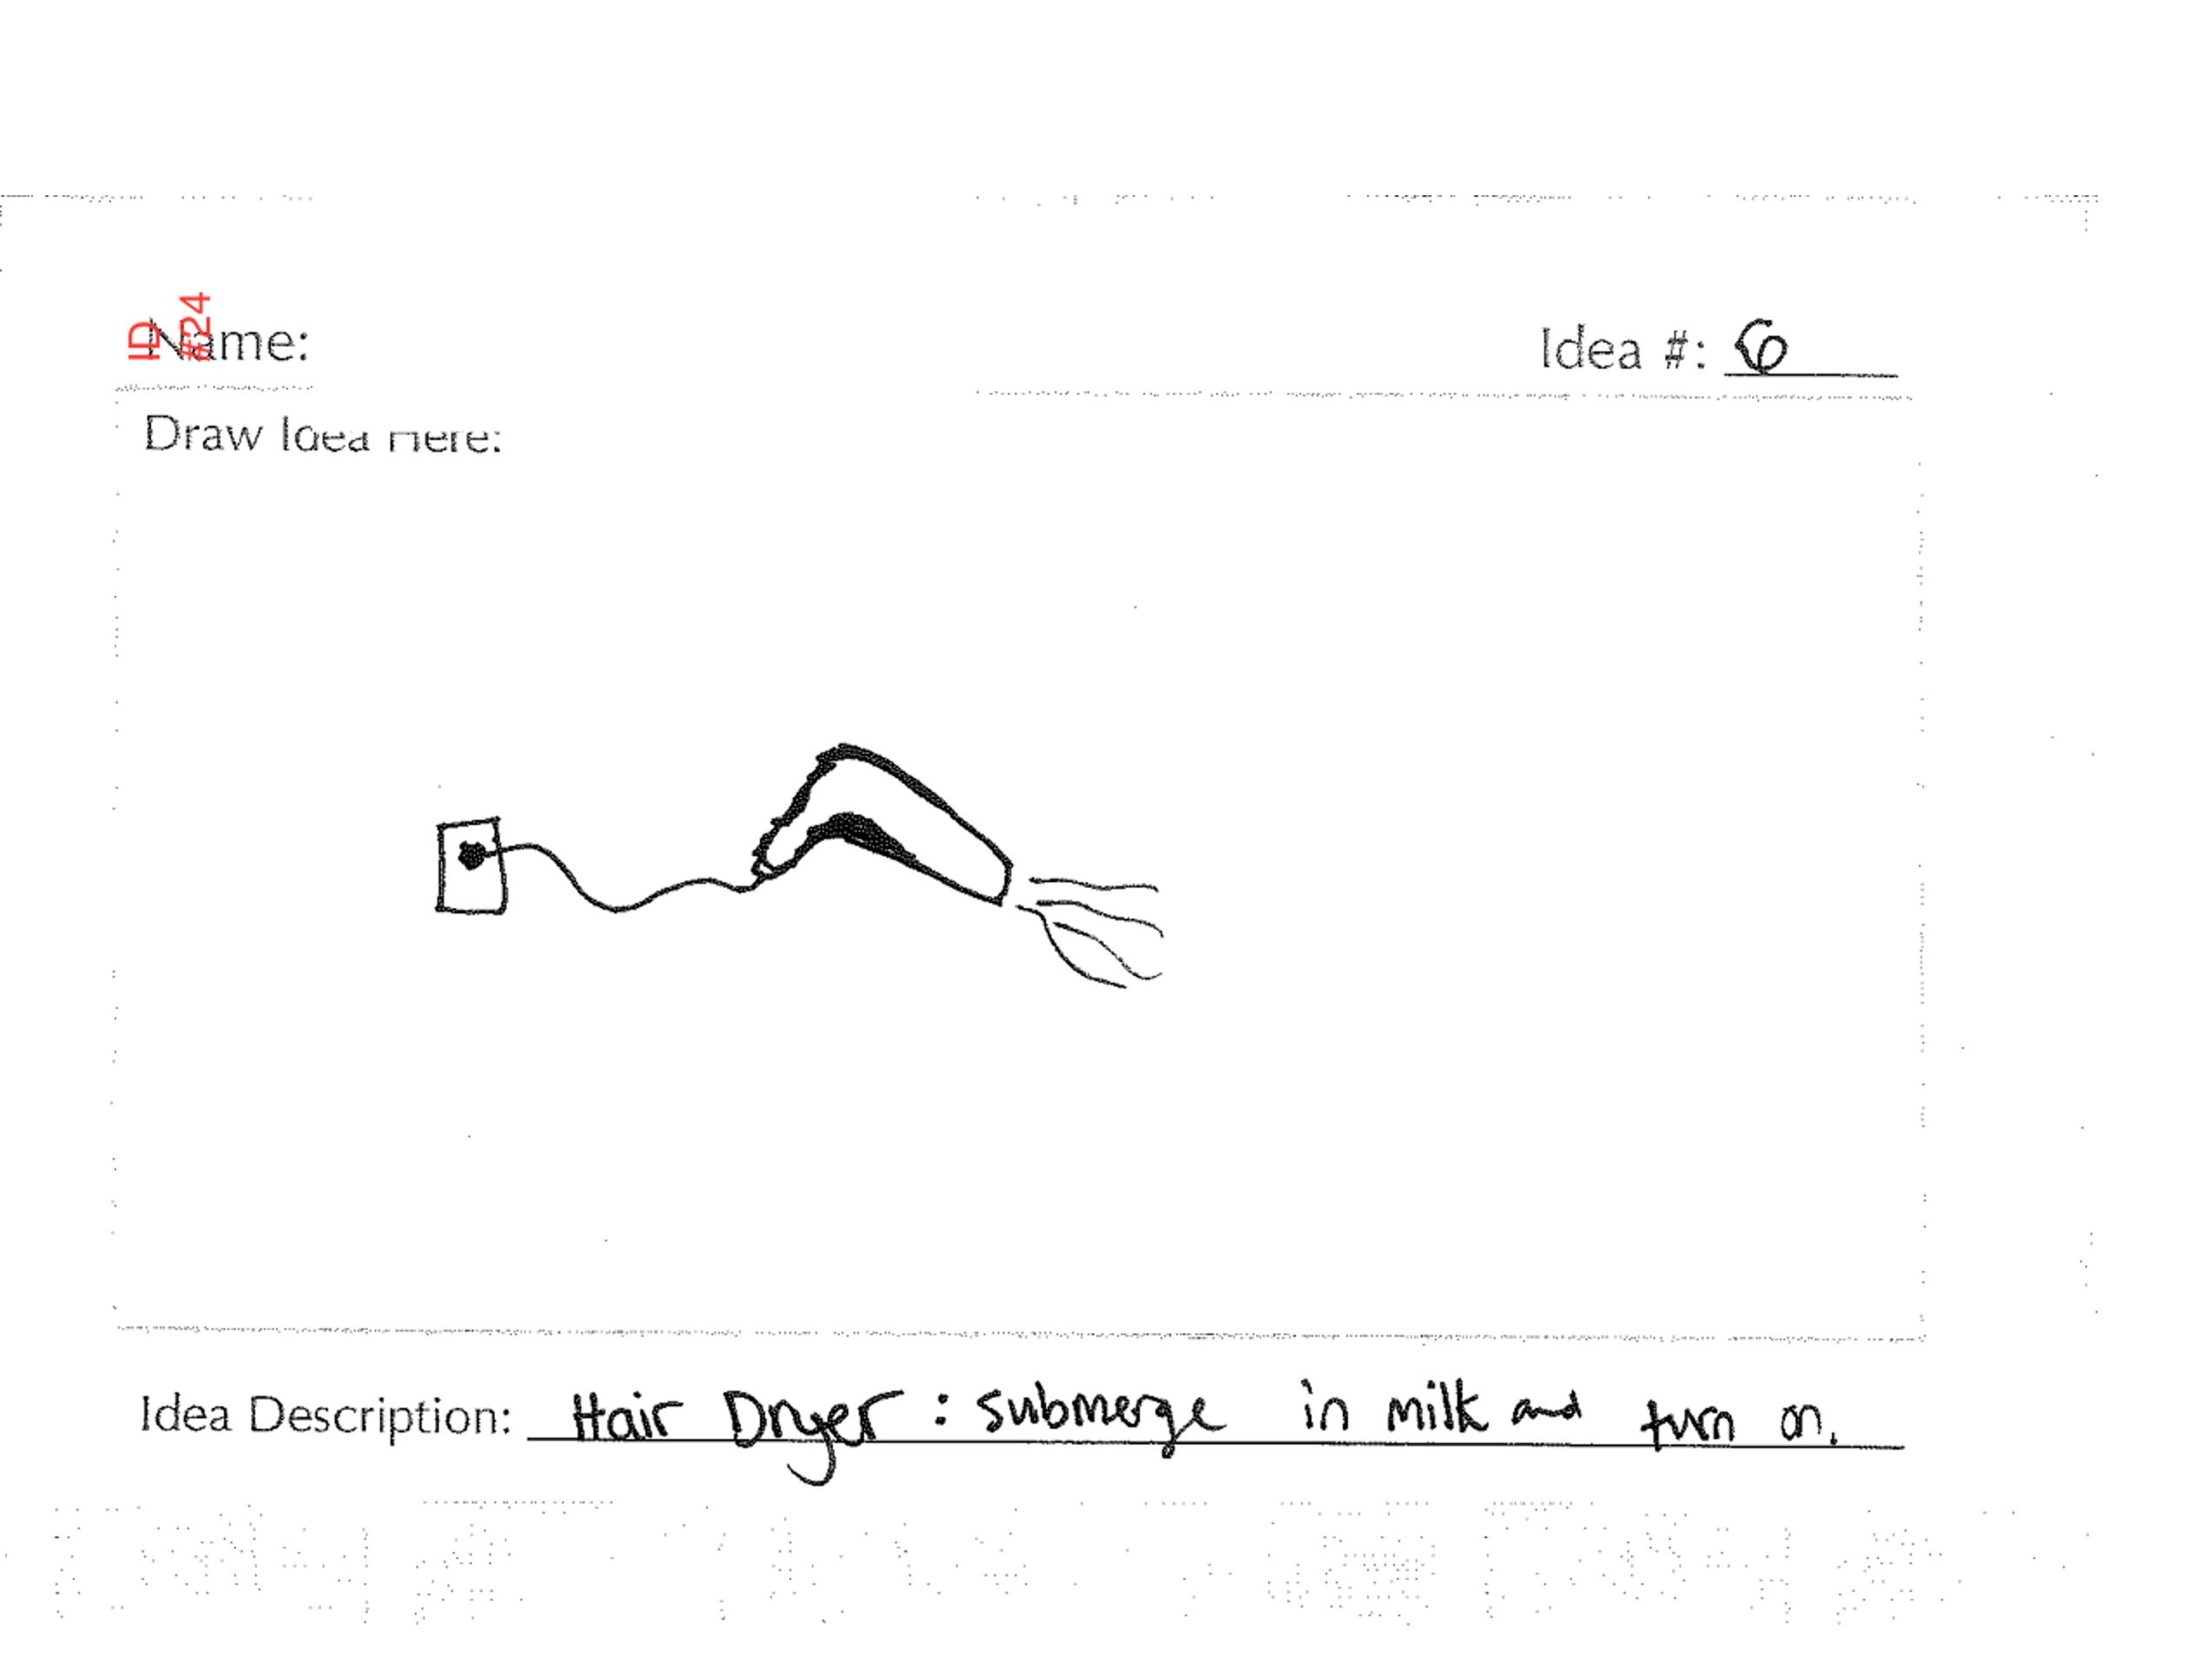 ID
#24
Name:
Idea #: 6
Draw Idea Here:
Idea Description: Hair Dryer : submerge in milk and turn on.